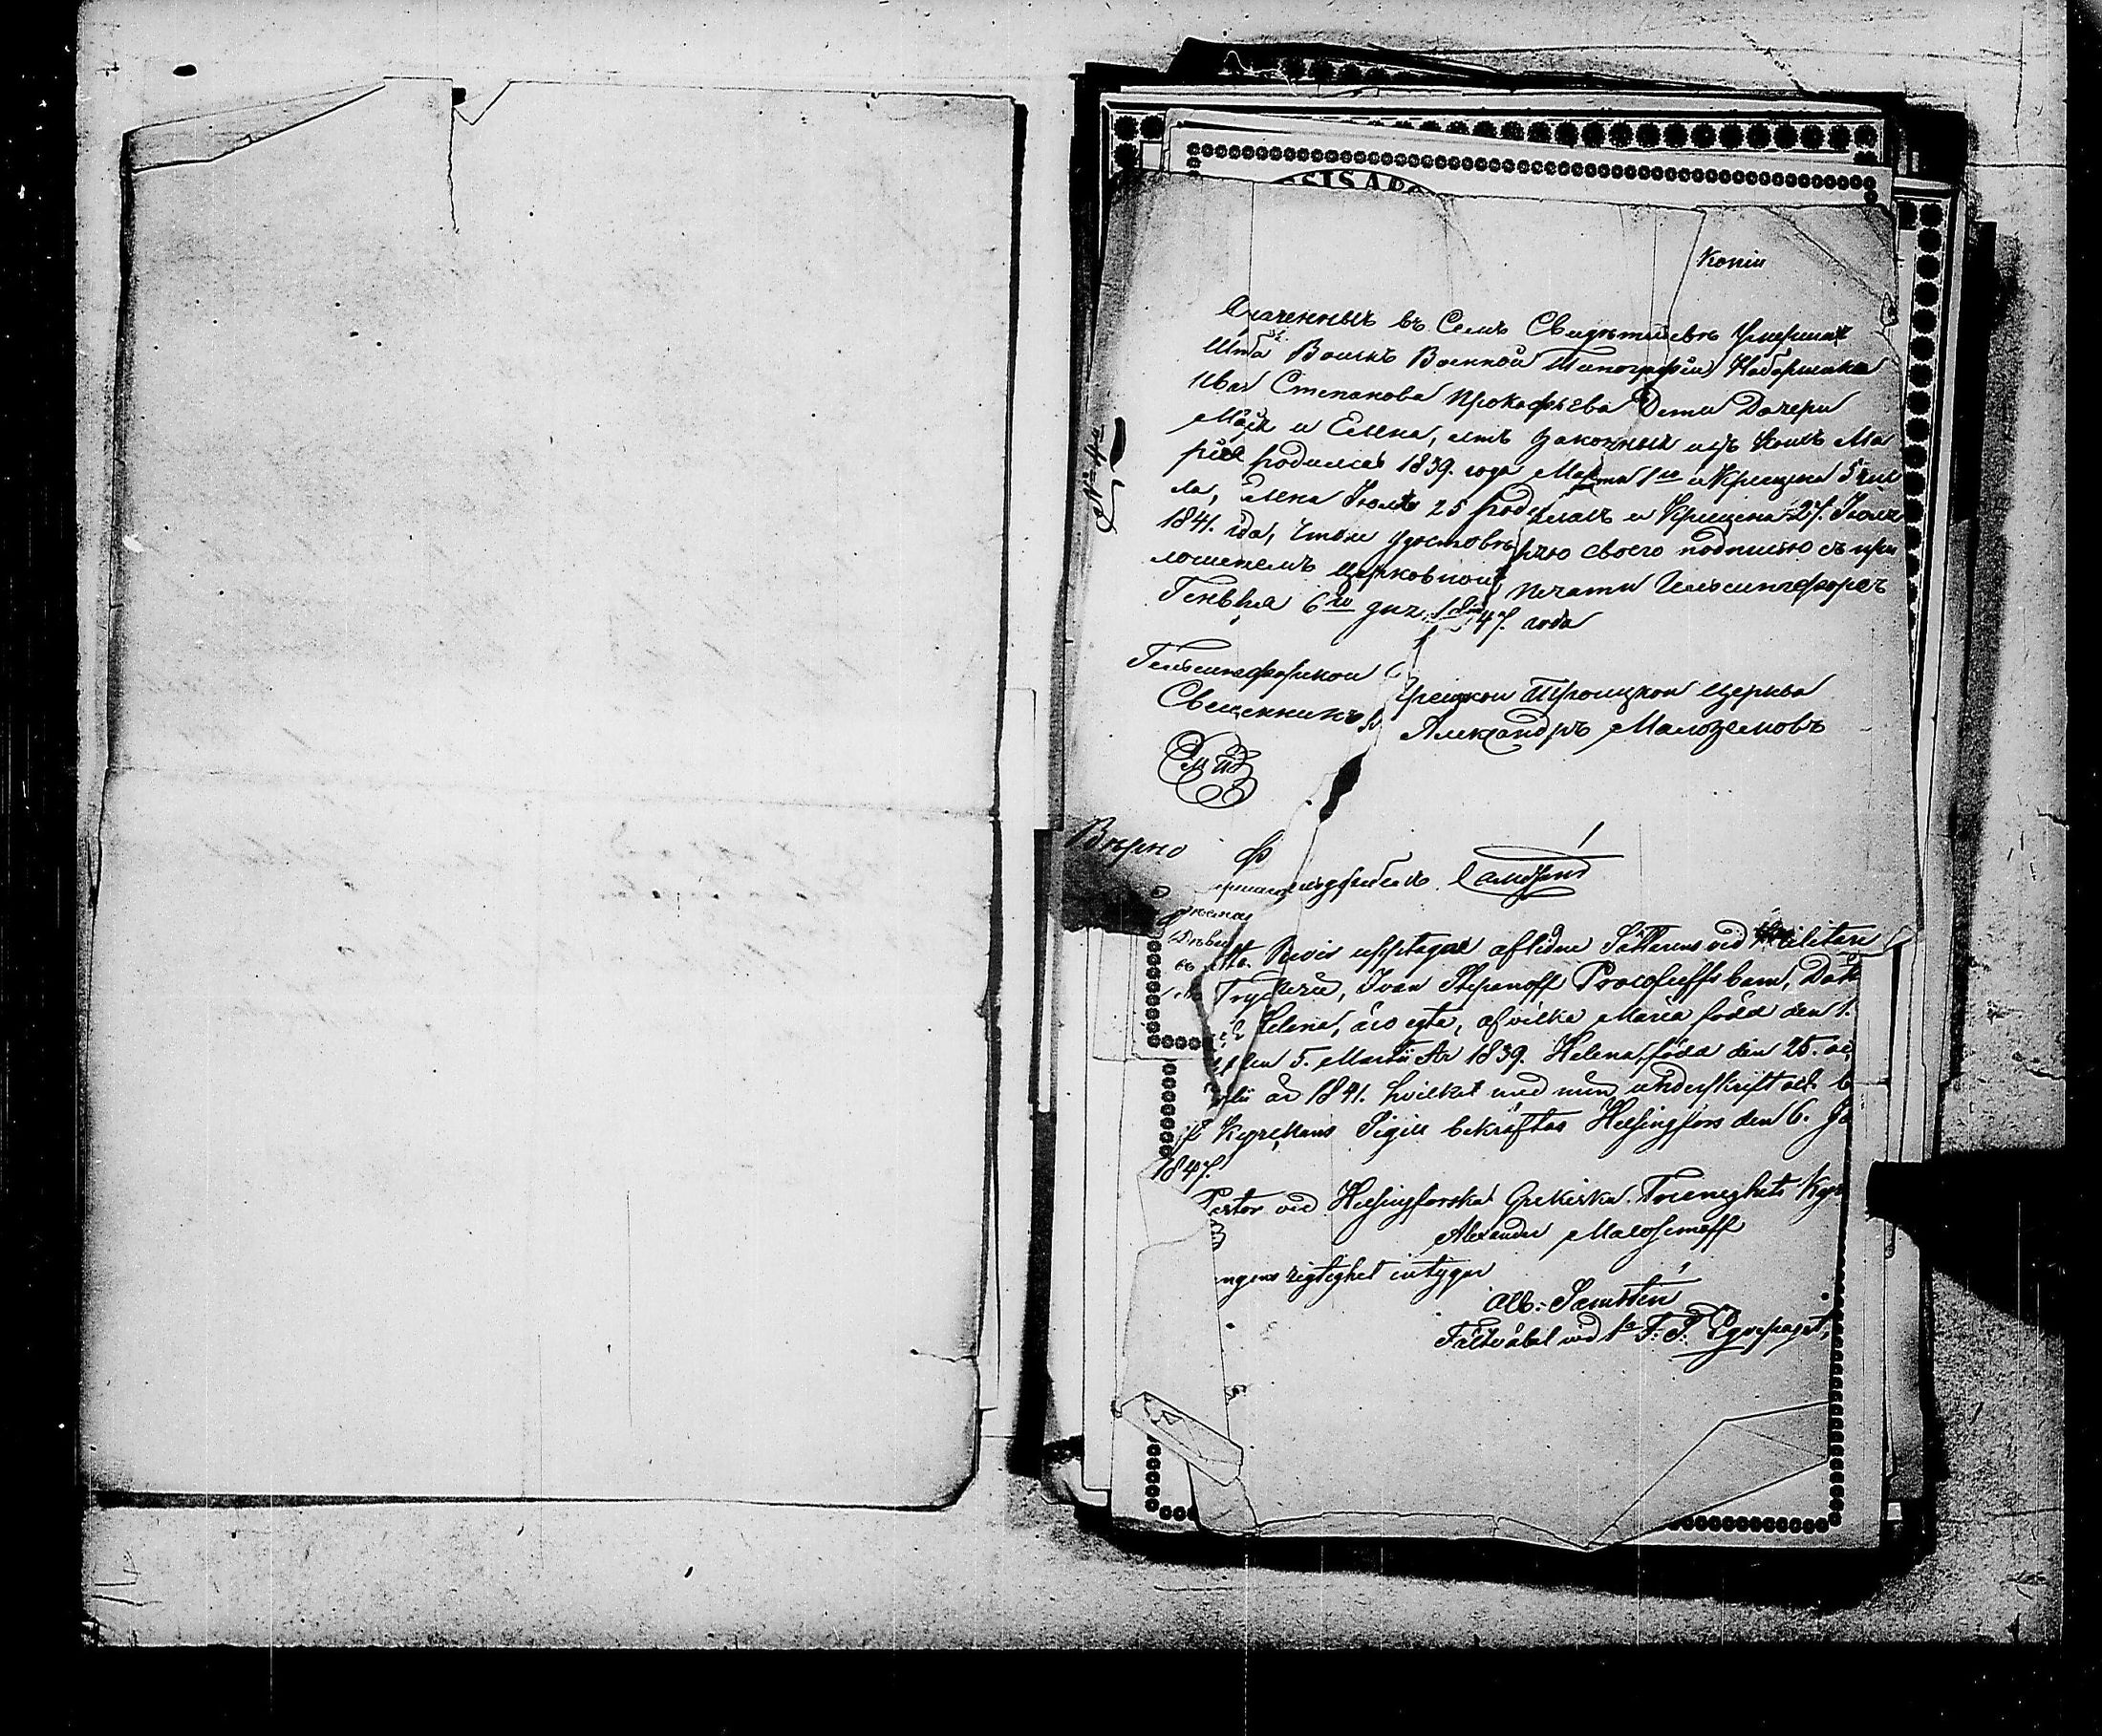 SSIS APO
Копiя
Означенныхъ въ Семъ Свидѣтельевѣ Умершаг
Шта Воискъ Военной Типографiи Наборщика
Иван Степанова Прокофьева Дети Дочери
Марiя и Елена, законныя изъ коихъ Ма
рiя родилась 1839. года Марта 1го и Крещена 5 чис
ла, Елена Iюля 25 родилась и Крещена 27. Iюля
1841. года, Чтоже удостовѣряю своею подписью съ при
ложенiемъ Церковной Печати Гельсингфорсъ
Генваря 6го дня 1847. года
Гельсингфорской Греческой Троицкой Церкви
Священникъ Александръ Малоземовъ
МП
Вѣрно
Ф
upptagne aflidne Sättarens vid Militäre
Tryckerie, Ivan Stepanoff Procofieffs barn, Dött
Helena, äro egta, af vilka Maria född den 1.
den 5. Martii År 1839. Helena, född den 25. oc
år 1841. hvilket med min underskrift och
Kyrckans Sigill bekräftas Helsingfors den 6. Ja
1847.
Pastor vid Helsingforska Grekiska Treenighets Kyr
Alexander Malosemoff
ngens rigtighet intygar
Alb: Samsten
Fältväbel vid 1a F: S: Eqvipaget,